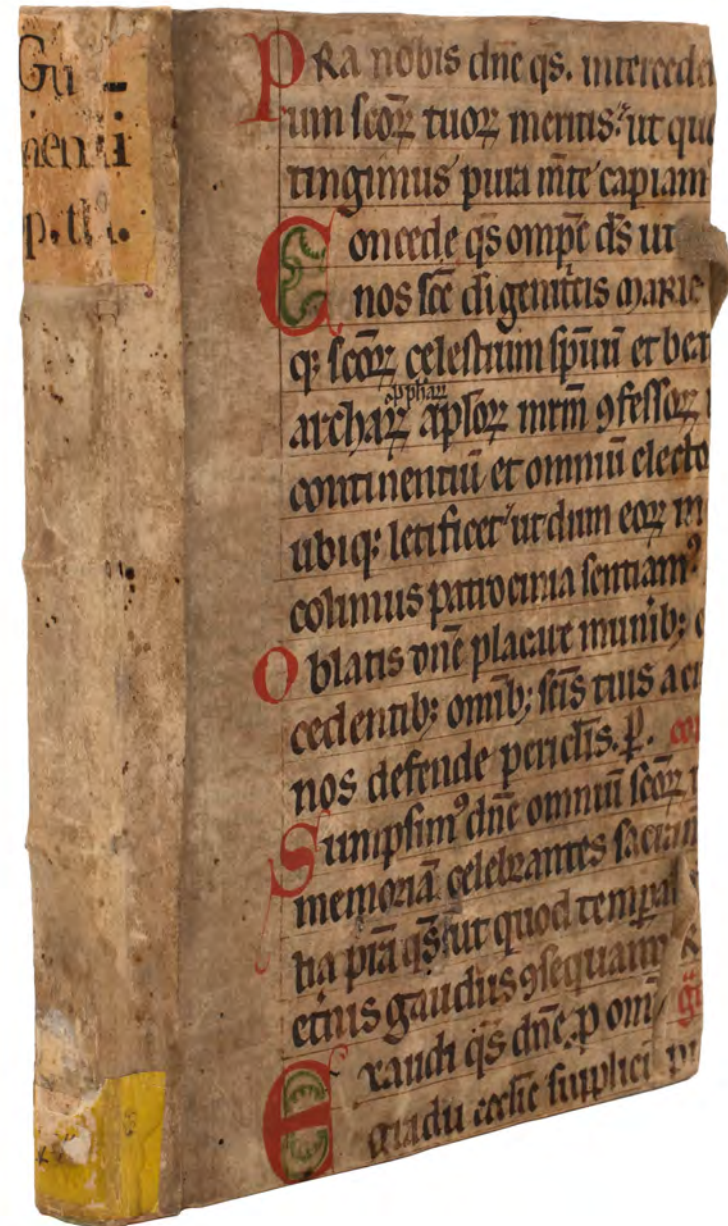 Gu-
nenſii
p. tho.
PRa nobis dn̄e qs̄. intercede
um ſcōꝝ tuoꝝ meritis: ut qu
tingimus pura m̄te capiam
Concede qs̄ omp̄e ds̄ ut
nos ſcē di genitcis marie
qꝫ ſcōꝝ celeſtium ſpūū et bea
archaꝝ apſoꝝ mrm̄ ꝯfeſſoꝝ
continentiū et omniū electo
ubiqꝫ letificet ut dum eoꝝ m
colimus patrocinia ſentiamꝰ
Oblatis dn̄e placare munibꝫ
cedentibꝫ omībꝫ ſcīs tuis a cu
nos defende periclīs. p̄. co
Sumpſimꝰ dn̄e omniū ſcōꝝ
memoriā celebrantes ſacram
tia p̄ta qs̄ ut quod tempal
et̄nis gaudiis ꝯſequamur
Exaudi qs̄ dn̄e p om̄i
gradu eccl̄ie ſupplici